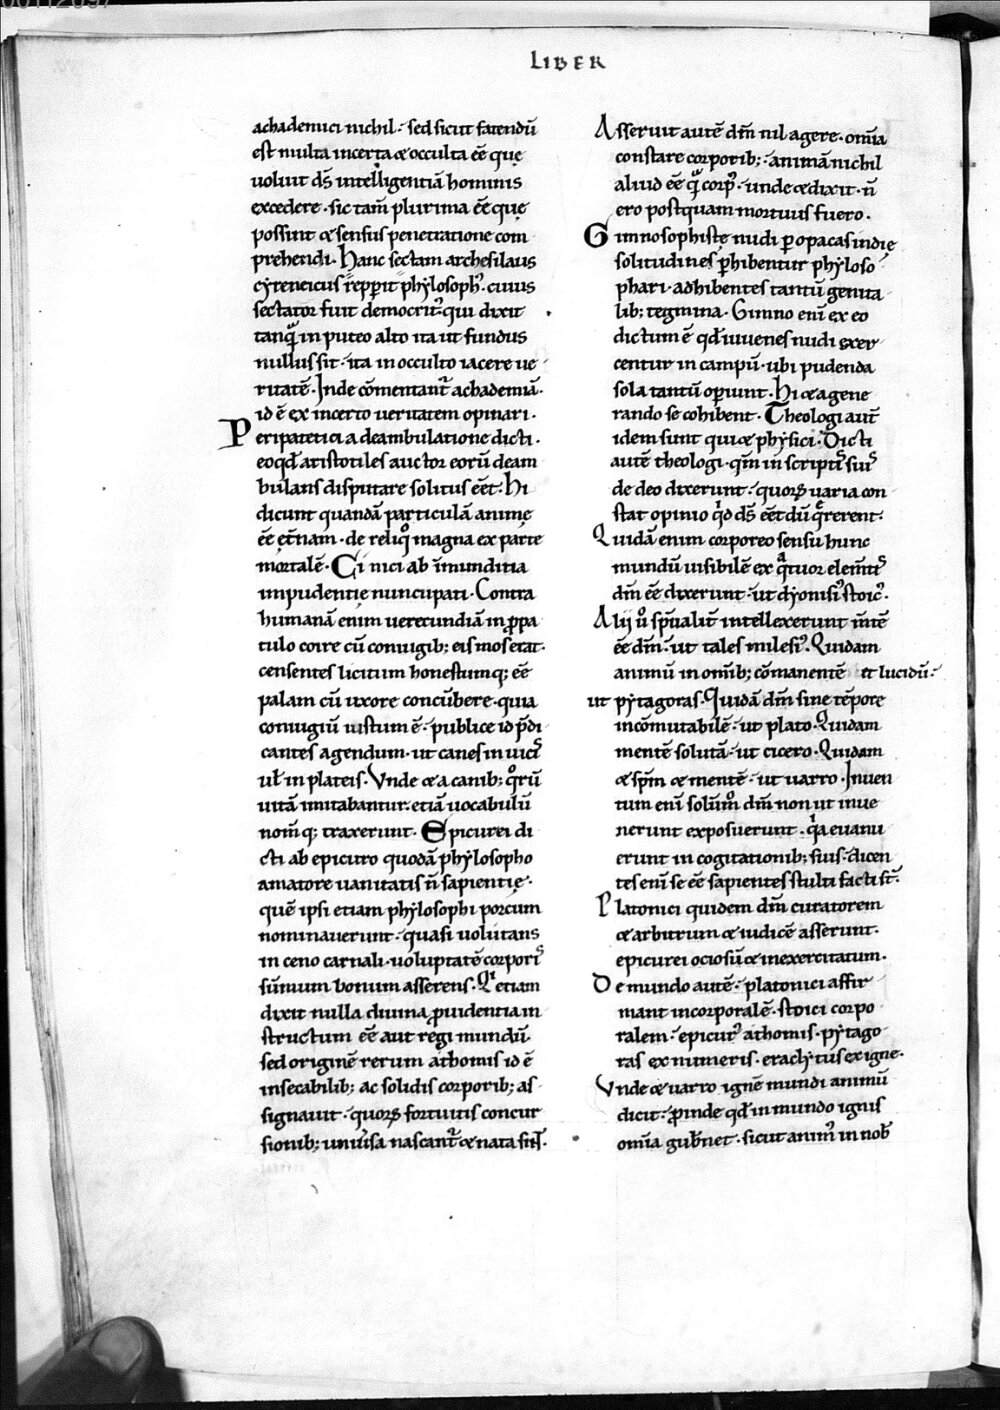 LIBER
achademici nichil. sed sicut fatendū
est multa incerta & occulta eē quę
voluit dš intelligentiā hominis
excedere. sic tam̄ plurima eē quę
possint & sensus penetratione com
prehendi. Hanc sectam archesilaus
cyreneicus repperit phylosoph᾿. cuius
sectator fuit democrit᾿. qui dixit
tanquā in puteo alto ita ut fundus
nullus sit. ita in occulto iacere ve
ritatē. Inde cōmentant᷑ achademiā.
id ē ex incerto veritatem opinari.
Peripatetici a deambulatione dicti.
eo qđ aristotiles auctor eorū deam
bulans disputare solitus eēt. Hi
dicunt quandā particulā animę
eē et̄nam. de reliq̊ magna ex parte
mortalē. Cinici ab īmunditia
impudentię nuncupati. Contra
humanā enim verecundiā in ꝓpa
tulo coire cū coniugib; eis mos erat.
censentes licitum honestumq; eē
palam cū uxore concūbere. quia
coniugiū iustum ē. publice id p̄di
cantes agendum. ut canes in vicis
ul̄ in plateis. Vnde & a canib; quorū
vitā imitabantur. etiā vocabulū
nom̄q; traxerunt. Epicurei di
cti ab epicuro quodā phylosopho
amatore vanitatis n̄ sapientię.
quē ipsi etiam phylosophi porcum
nominaverunt. quasi volutans
in ceno carnali. voluptatē corporis
sūmum bonum asserens. Qui etiam
dixit nulla divina ꝓvidentia in
structum eē aut regi mundū.
sed originē rerum athomis id ē
insecabilib; ac solidis corporib; as
signavit. quoꝝ fortuitis concur
sionib; univ̄sa nascant᷑ & nata sint.
Asseruit autē dm̄ nil agere. om̄ia
constare corporib; animā nichil
aliud eē quā corp᾿. unde & dixit. n̄
ero postquam mortuus fuero.
Gimnosophistę nudi ꝑ opacas indię
solitudines ꝑhibentur phyloso
phari. adhibentes tantū genita
lib; tegmina. Gimno enī ex eo
dictum ē qđ iuvenes nudi exer
centur in campū. ubi pudenda
sola tantū operiunt. Hi & a gene
rando se cohibent. Theologi aut̄
idem sunt qui & physici. Dicti
autē theologi. qm̄ in scriptis suis
de deo dixerunt. quoꝝ varia con
stat opinio quid dš eēt dū quęrerent.
Quidā enim corporeo sensu hunc
mundū visibilē ex quatuor elem̄tis
dm̄ eē dixerunt. ut dyonisi᾿ stoic᾿.
Alij v̊ sp̄ualit̄ intellexerunt m̄tē
eē dm̄. ut tales milesi᾿. Quidam
animū in om̄ib; cōmanentē et lucidū.
ut pytagoras. Quidā dm̄ sine tēpore
incōmutabilē. ut plato. Quidam
mentē solutā. ut cicero. Quidam
& sp̄m & mentē. ut varro. Inven
tum enī solūm̊ dm̄ non ut inve
nerunt exposuerunt. quia evanu
erunt in cogitationib; suis. dicen
tes enī se eē sapientes stulti facti st̄.
Platonici quidem dm̄ curatorem
& arbitrum & iudicē asserunt.
epicurei ociosū & inexercitatum.
De mundo autē. platonici affir
mant incorporalē. stoici corpo
ralem. epicur᾿ athomis. pytago
ras ex numeris. eraclytus ex igne.
Vnde & varro ignē mundi animū
dicit. ꝓinde qđ in mundo ignis
om̄ia gub̄net. sicut anim᾿ in nob̄